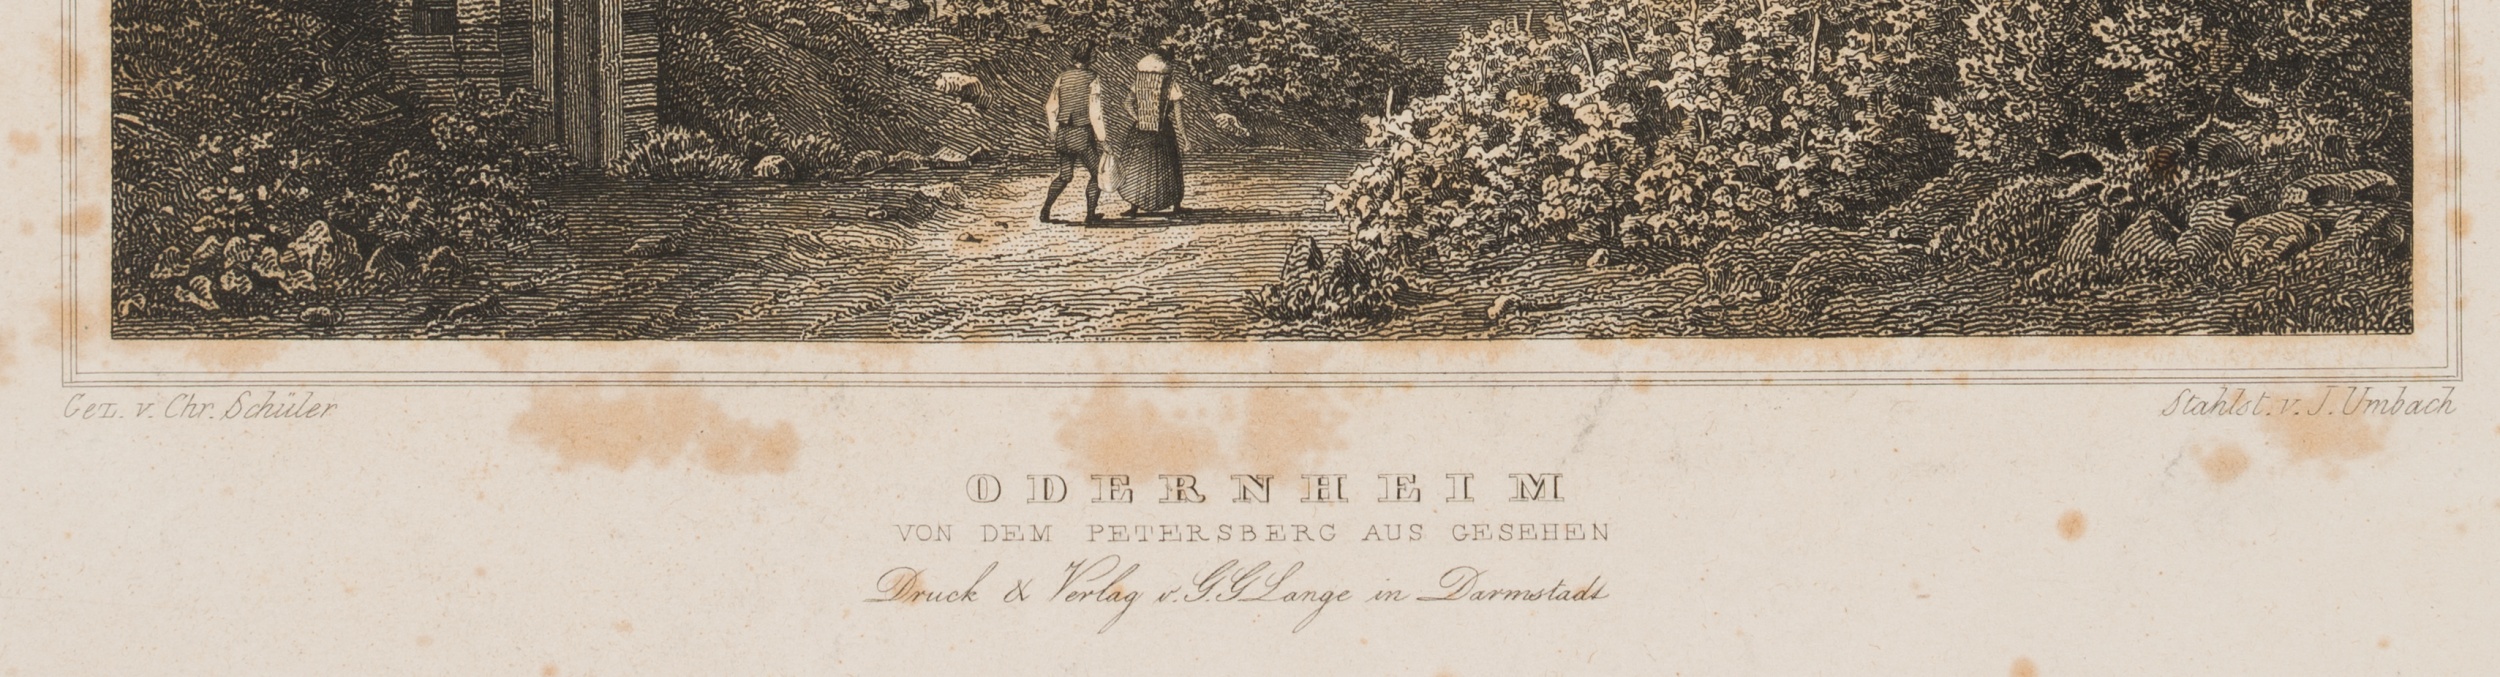 Gez. v. Chr. Schüler
Stahlst. v. J. Umbach
ODERNHEIM
VON DEM PETERSBERG AUS GESEHEN
Druck & Verlag v. G. G Lange in Darmstadt